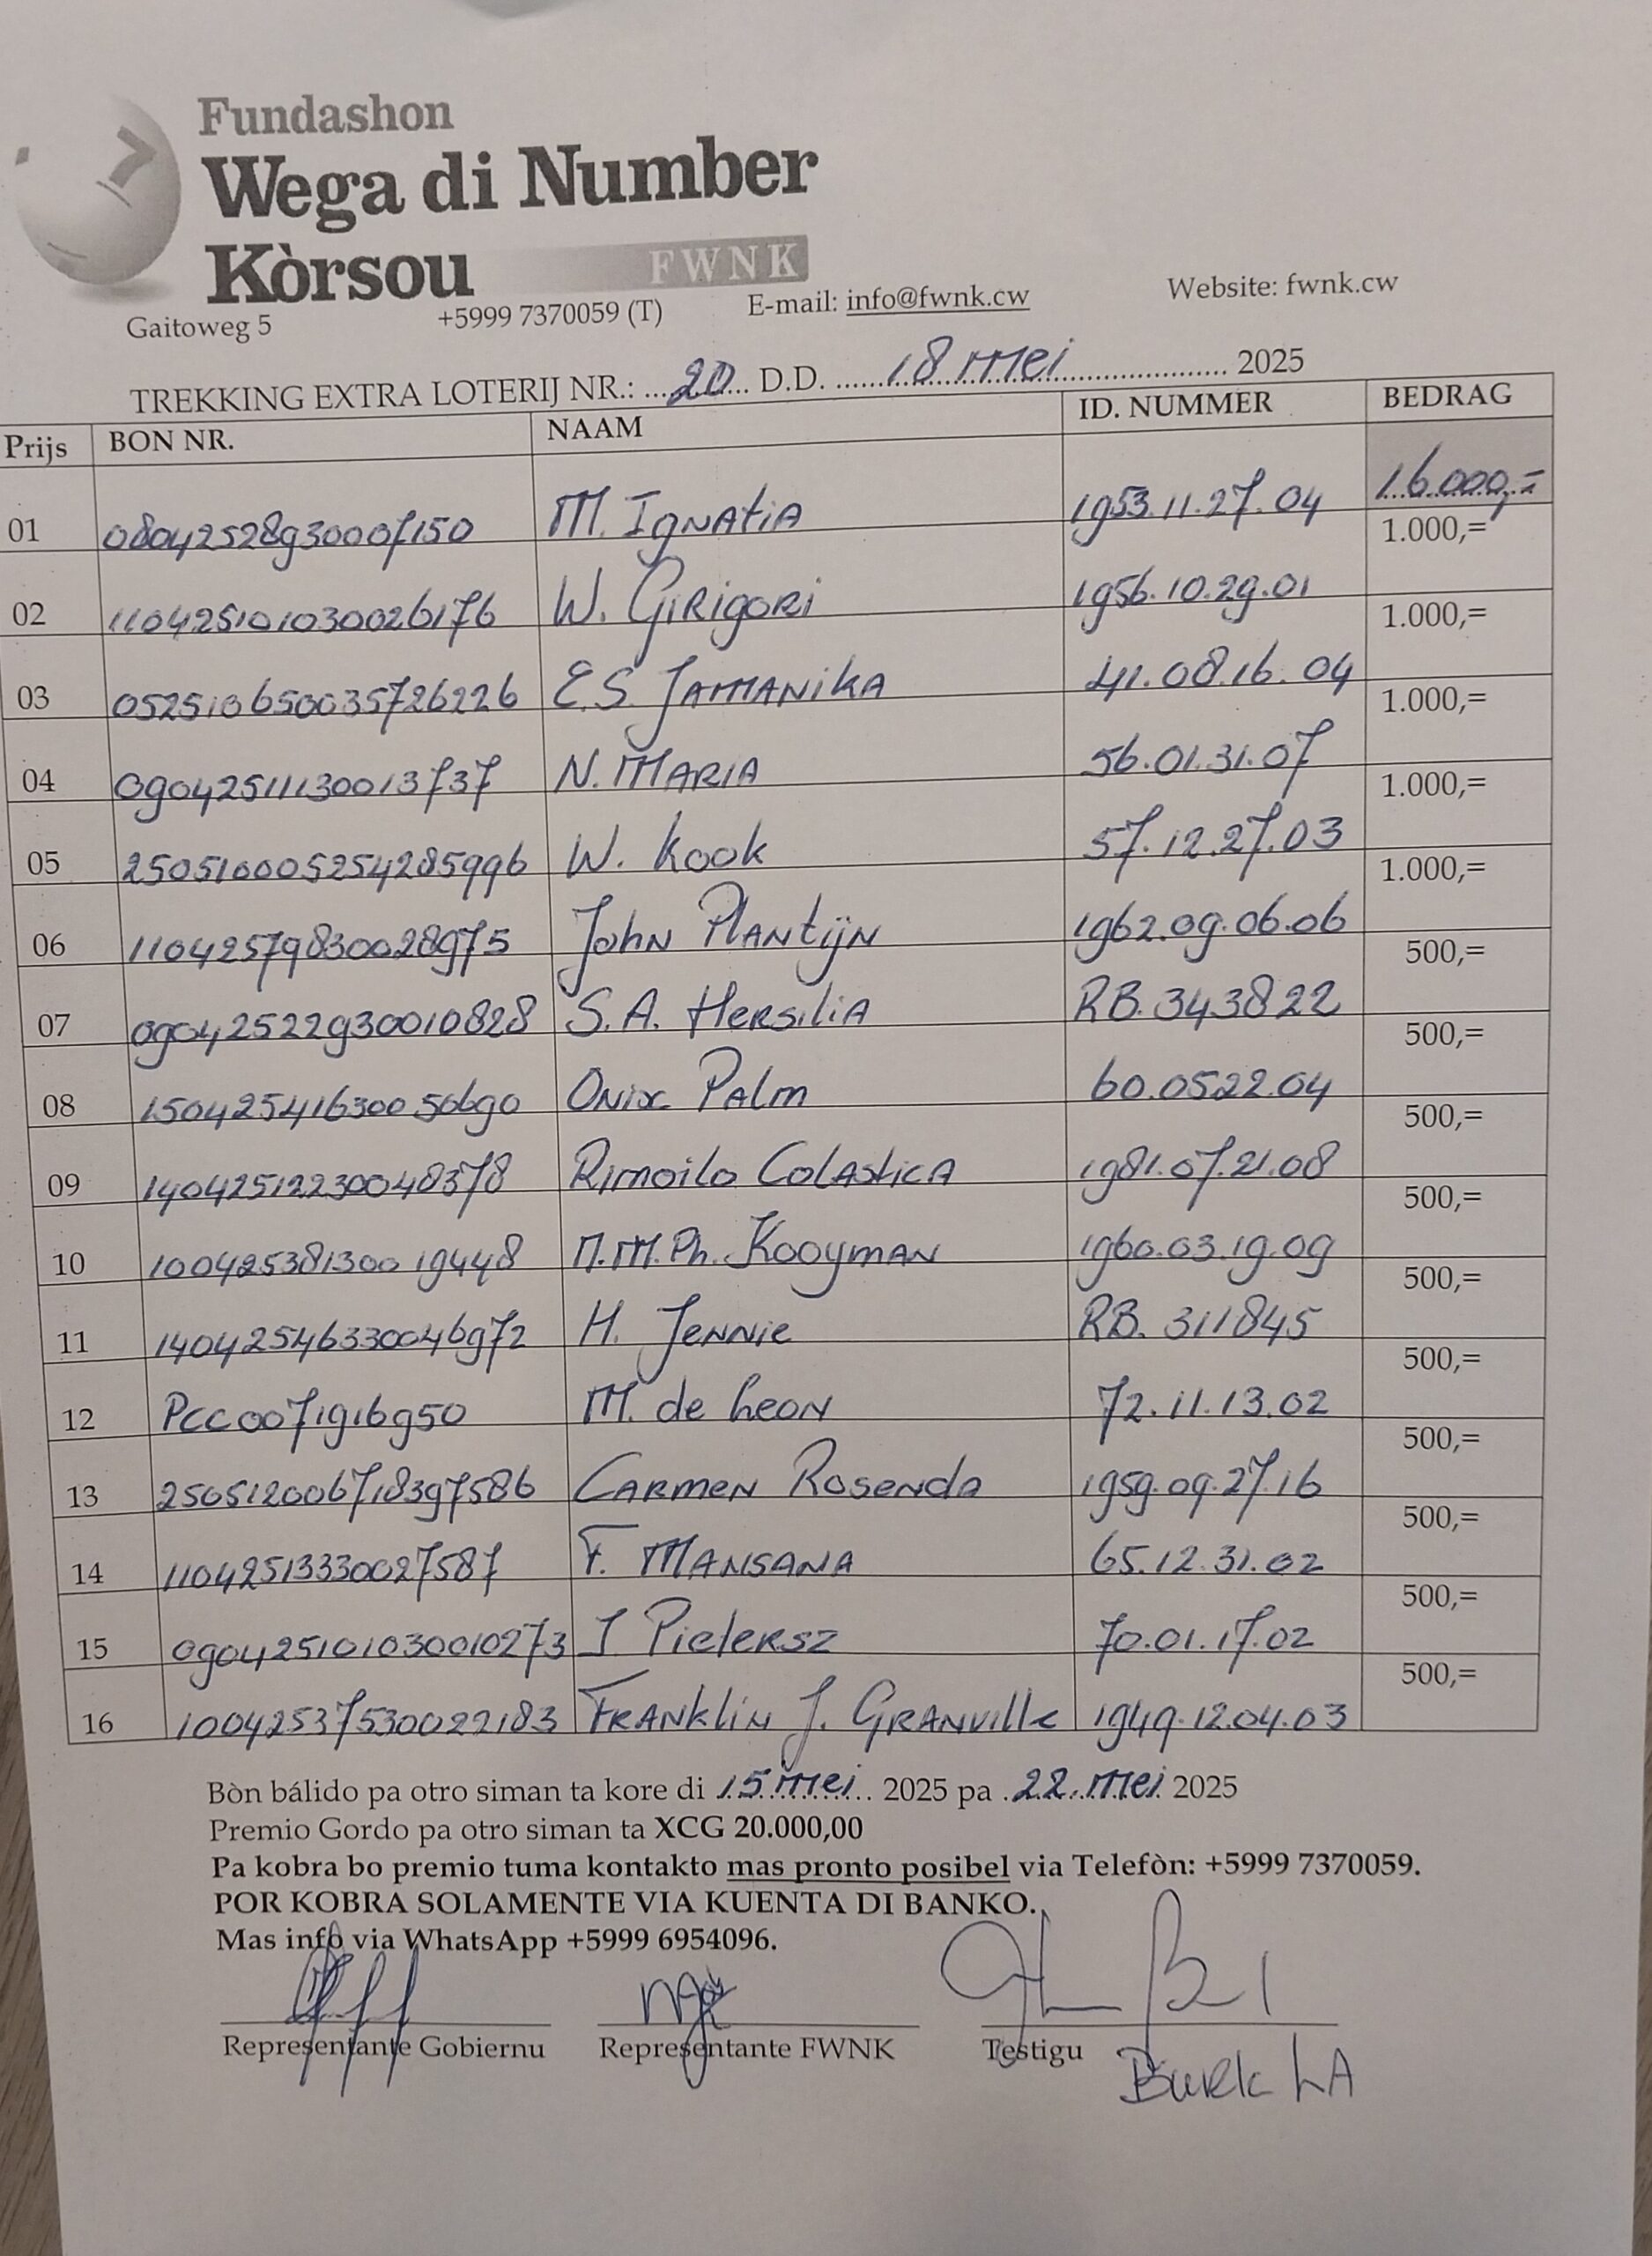 Fundashon
Wega di Number
Kòrsou FWNK
Gaitoweg 5 +5999 7370059 (T) E-mail: info@fwnk.cw Website: fwnk.cw
TREKKING EXTRA LOTERIJ NR.: ...20... D.D. ......18 mei...... 2025
Prijs BON NR. NAAM ID. NUMMER BEDRAG
01 08042528930007150 M. Ignatia 1953.11.27.04 16.000,=
02 110425101030026176 W. Girigori 1956.10.29.01 1.000,=
03 052510650035726226 E.S. Jamanika 41.08.16.04 1.000,=
04 09042511130013737 N. Maria 56.01.31.07 1.000,=
05 250510005254285996 W. Kook 57.12.27.03 1.000,=
06 11042579830028975 John Plantijn 1962.09.06.06 1.000,=
07 09042522930010828 S.A. Hersilia RB.343822 500,=
08 150425416300 50690 Onix Palm 60.0522.04 500,=
09 14042512230048378 Rimoilo Colastica 1981.07.21.08 500,=
10 100425381300 19448 M.M.Ph. Kooyman 1960.03.19.09 500,=
11 14042546330046972 H. Jennie RB. 311845 500,=
12 PCC0071916950 M. de Leon 72.11.13.02 500,=
13 250512006718397586 Carmen Rosenda 1959.09.27.16 500,=
14 11042513330027587 F. Mansana 65.12.31.02 500,=
15 090425101030010273 J Pietersz 70.01.17.02 500,=
16 10042537530022183 Franklin J. Granville 1949.12.04.03 500,=
Bòn bálido pa otro siman ta kore di 15 mei 2025 pa 22 mei 2025
Premio Gordo pa otro siman ta XCG 20.000,00
Pa kobra bo premio tuma kontakto mas pronto posibel via Telefòn: +5999 7370059.
POR KOBRA SOLAMENTE VIA KUENTA DI BANKO.
Mas info via WhatsApp +5999 6954096.
Representante Gobiernu Representante FWNK Testigu